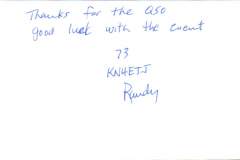 Thanks for the QSO
good luck with the event
73
KN4ETJ
Randy